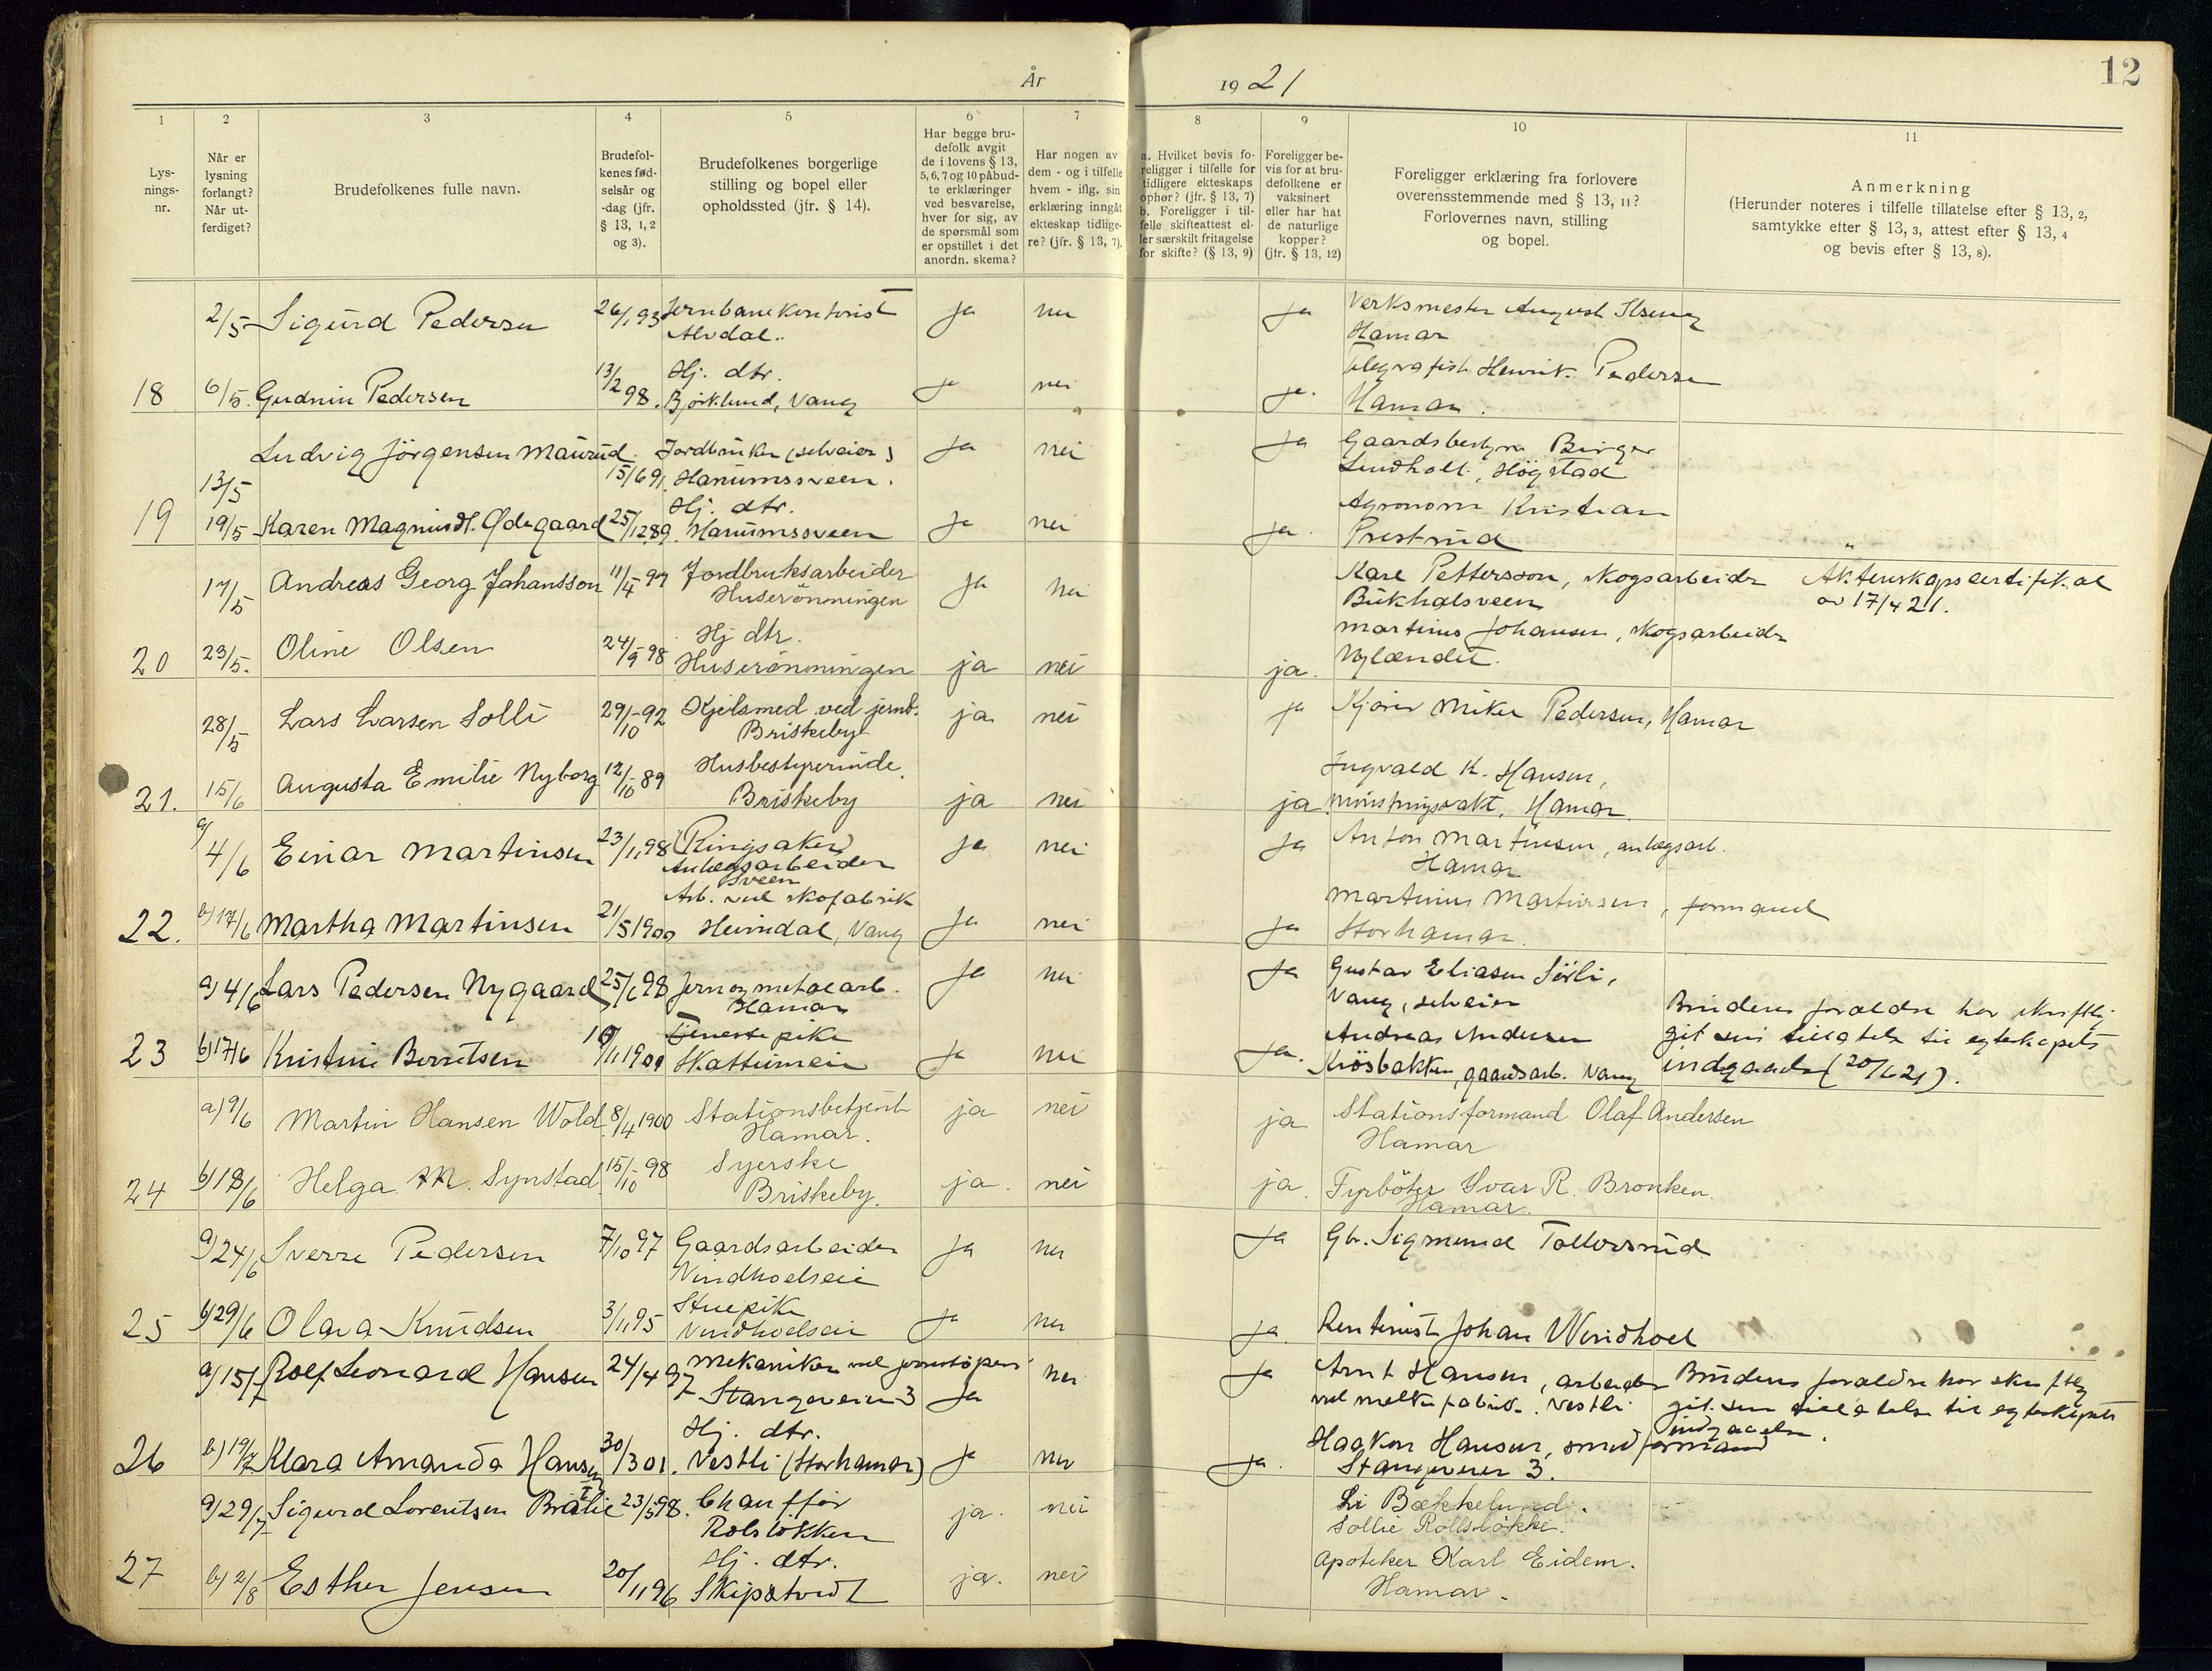 12
År 1921
1 2 3 4 5 6 7 8 9 10 11
Lys-
nings-
nr.
Når er
lysning
forlangt?
Når ut-
ferdiget?
Brudefolkenes fulle navn.
Brudefol-
kenes fød-
selsår og
-dag (jfr.
§ 13, 1, 2
og 3).
Brudefolkenes borgerlige
stilling og bopel eller
opholdssted (jfr. § 14).
Har begge bru-
defolk avgit
de i lovens § 13,
5, 6, 7 og 10 påbud-
te erklæringer
ved besvarelse,
hver for sig, av
de spørsmål som
er opstillet i det
anordn. skema?
Har nogen av
dem - og i tilfelle
hvem - iflg. sin
erklæring inngåt
ekteskap tidlige-
re? (jfr. § 13, 7).
a. Hvilket bevis fo-
religger i tilfelle for
tidligere ekteskaps
ophør? (jfr. § 13, 7)
b. Foreligger i til-
felle skifteattest el-
ler særskilt fritagelse
for skifte? (§ 13, 9)
Foreligger be-
vis for at bru-
defolkene er
vaksinert
eller har hat
de naturlige
kopper?
(jfr. § 13, 12)
Foreligger erklæring fra forlovere
overensstemmende med § 13, 11?
Forlovernes navn, stilling
og bopel.
Anmerkning
(Herunder noteres i tilfelle tillatelse efter § 13, 2,
samtykke efter § 13, 3, attest efter § 13, 4
og bevis efter § 13, 8).
2/5 Sigurd Pedersen 26/1 93 Jernbanekontorist ja nei ja Verksmester August
Alvdal. Hamar
18 6/5. Gudrun Pedersen 13/2 98. Hj. dtr. ja nei ja. Telegrafist Henrik Pedersen
Björklund, Vang Hamar.
13/5 Ludvig Jörgensen Maurud 15/6 91. Jordbruker (selveier) ja nei ja Gaardsbestyrer Birger
Hanumssveen. Lindholt, Högstad
19 19/5 Karen Magnusdt. Ødegaard 25/12 89. Hj. dtr. ja nei ja. Agronom Kristian
Hanumssveen Prestrud
17/5 Andreas Georg Johansson 11/4 97 Jordbruksarbeider ja nei Karl Pettersson, skogsarbeider Äktenskapscertifikat
Huserönningen Bukhalsveen av 17/4 21.
20 23/5. Oline Olsen 24/9 98 Hj dtr. Martinus Johansen, skogsarbeider
Huserönningen ja nei ja. Nylændet.
28/5 Lars Larsen Solli 29/10-92 Kjelsmed ved jernb. ja nei ja Kjører Mike Pedersen, Hamar
Briskeby
21. 15/6 Augusta Emilie Nyborg 12/10-89 Husbestyrerinde Ingvald K. Hansen,
Briskeby ja nei ja Hamar.
a) 4/6 Einar Martinsen 23/1 98 (Ringsaker) ja nei ja Anton Martinsen, anlegsarb.
Anlegsarbeider Hamar
Sveen
22. b) 17/6 Martha Martinsen 21/5 1900 Arb. ved skofabrik Martinus Martinsen, formand
Heimdal, Vang ja nei ja Storhamar.
a) 4/6 Lars Pedersen Nygaard 25/6 98 Jern og metalarb. ja nei ja Gustav Eliasen Sörli,
Hamar Vang, selveier Brudens forældre har skriftli-
23 b) 17/6 Kristine Berntsen Tjenestepike Andreas Andersen git sin tillatelse til egteskapets
Skattumeie ja nei ja. Kiösbakken, gaardsarb. Vang indgaaelse (20/6 21).
a) 9/6 Martin Hansen Wold 8/4 1900 Stationsbetjent ja nei ja Stationsformand Olaf Andersen
Hamar. Hamar
24 b) 18/6 Helga M. Synstad 15/10-98 Syerske ja. nei ja. Fyrböter Ivar R. Bronken.
Briskeby. Hamar.
a) 24/6 Sverre Pedersen 7/10 97 Gaardsarbeider ja nei ja Gb. Sigmund Tollersrud
Vindhoelseie
25 b) 29/6 Olava Knudsen 3/1 95 Stuepike ja nei ja. Rentenist Johan Windhoel
Vindhoelseie
a) 15/7 Rolf Leonard Hansen 24/4 97 Mekaniker ved jernstöperi nei ja Arnt Hansen, arbeider Brudens forældre har skriftlig
Stangeveien 3 ja ved melkefabrik. Vestli git sin tillatelse til egteskapets
indgaaelse.
26 b) 19/7 Klara Amanda Hansen 30/3 01. Hj. dtr. Haakon Hansen, smedformand
Vestli (Storhamar) ja nei ja. Stangeveien 3.
a) 29/7 Sigurd Lorentsen Brælie 23/5 98. Chauffør ja. nei Li Bækkelund.
Rolslökken Sollie Rollslökke.
27 b) 2/8 Esther Jensen 20/11 96 Hj. dtr. ja. nei Apoteker Karl Eidem.
Skipstvedt Hamar.